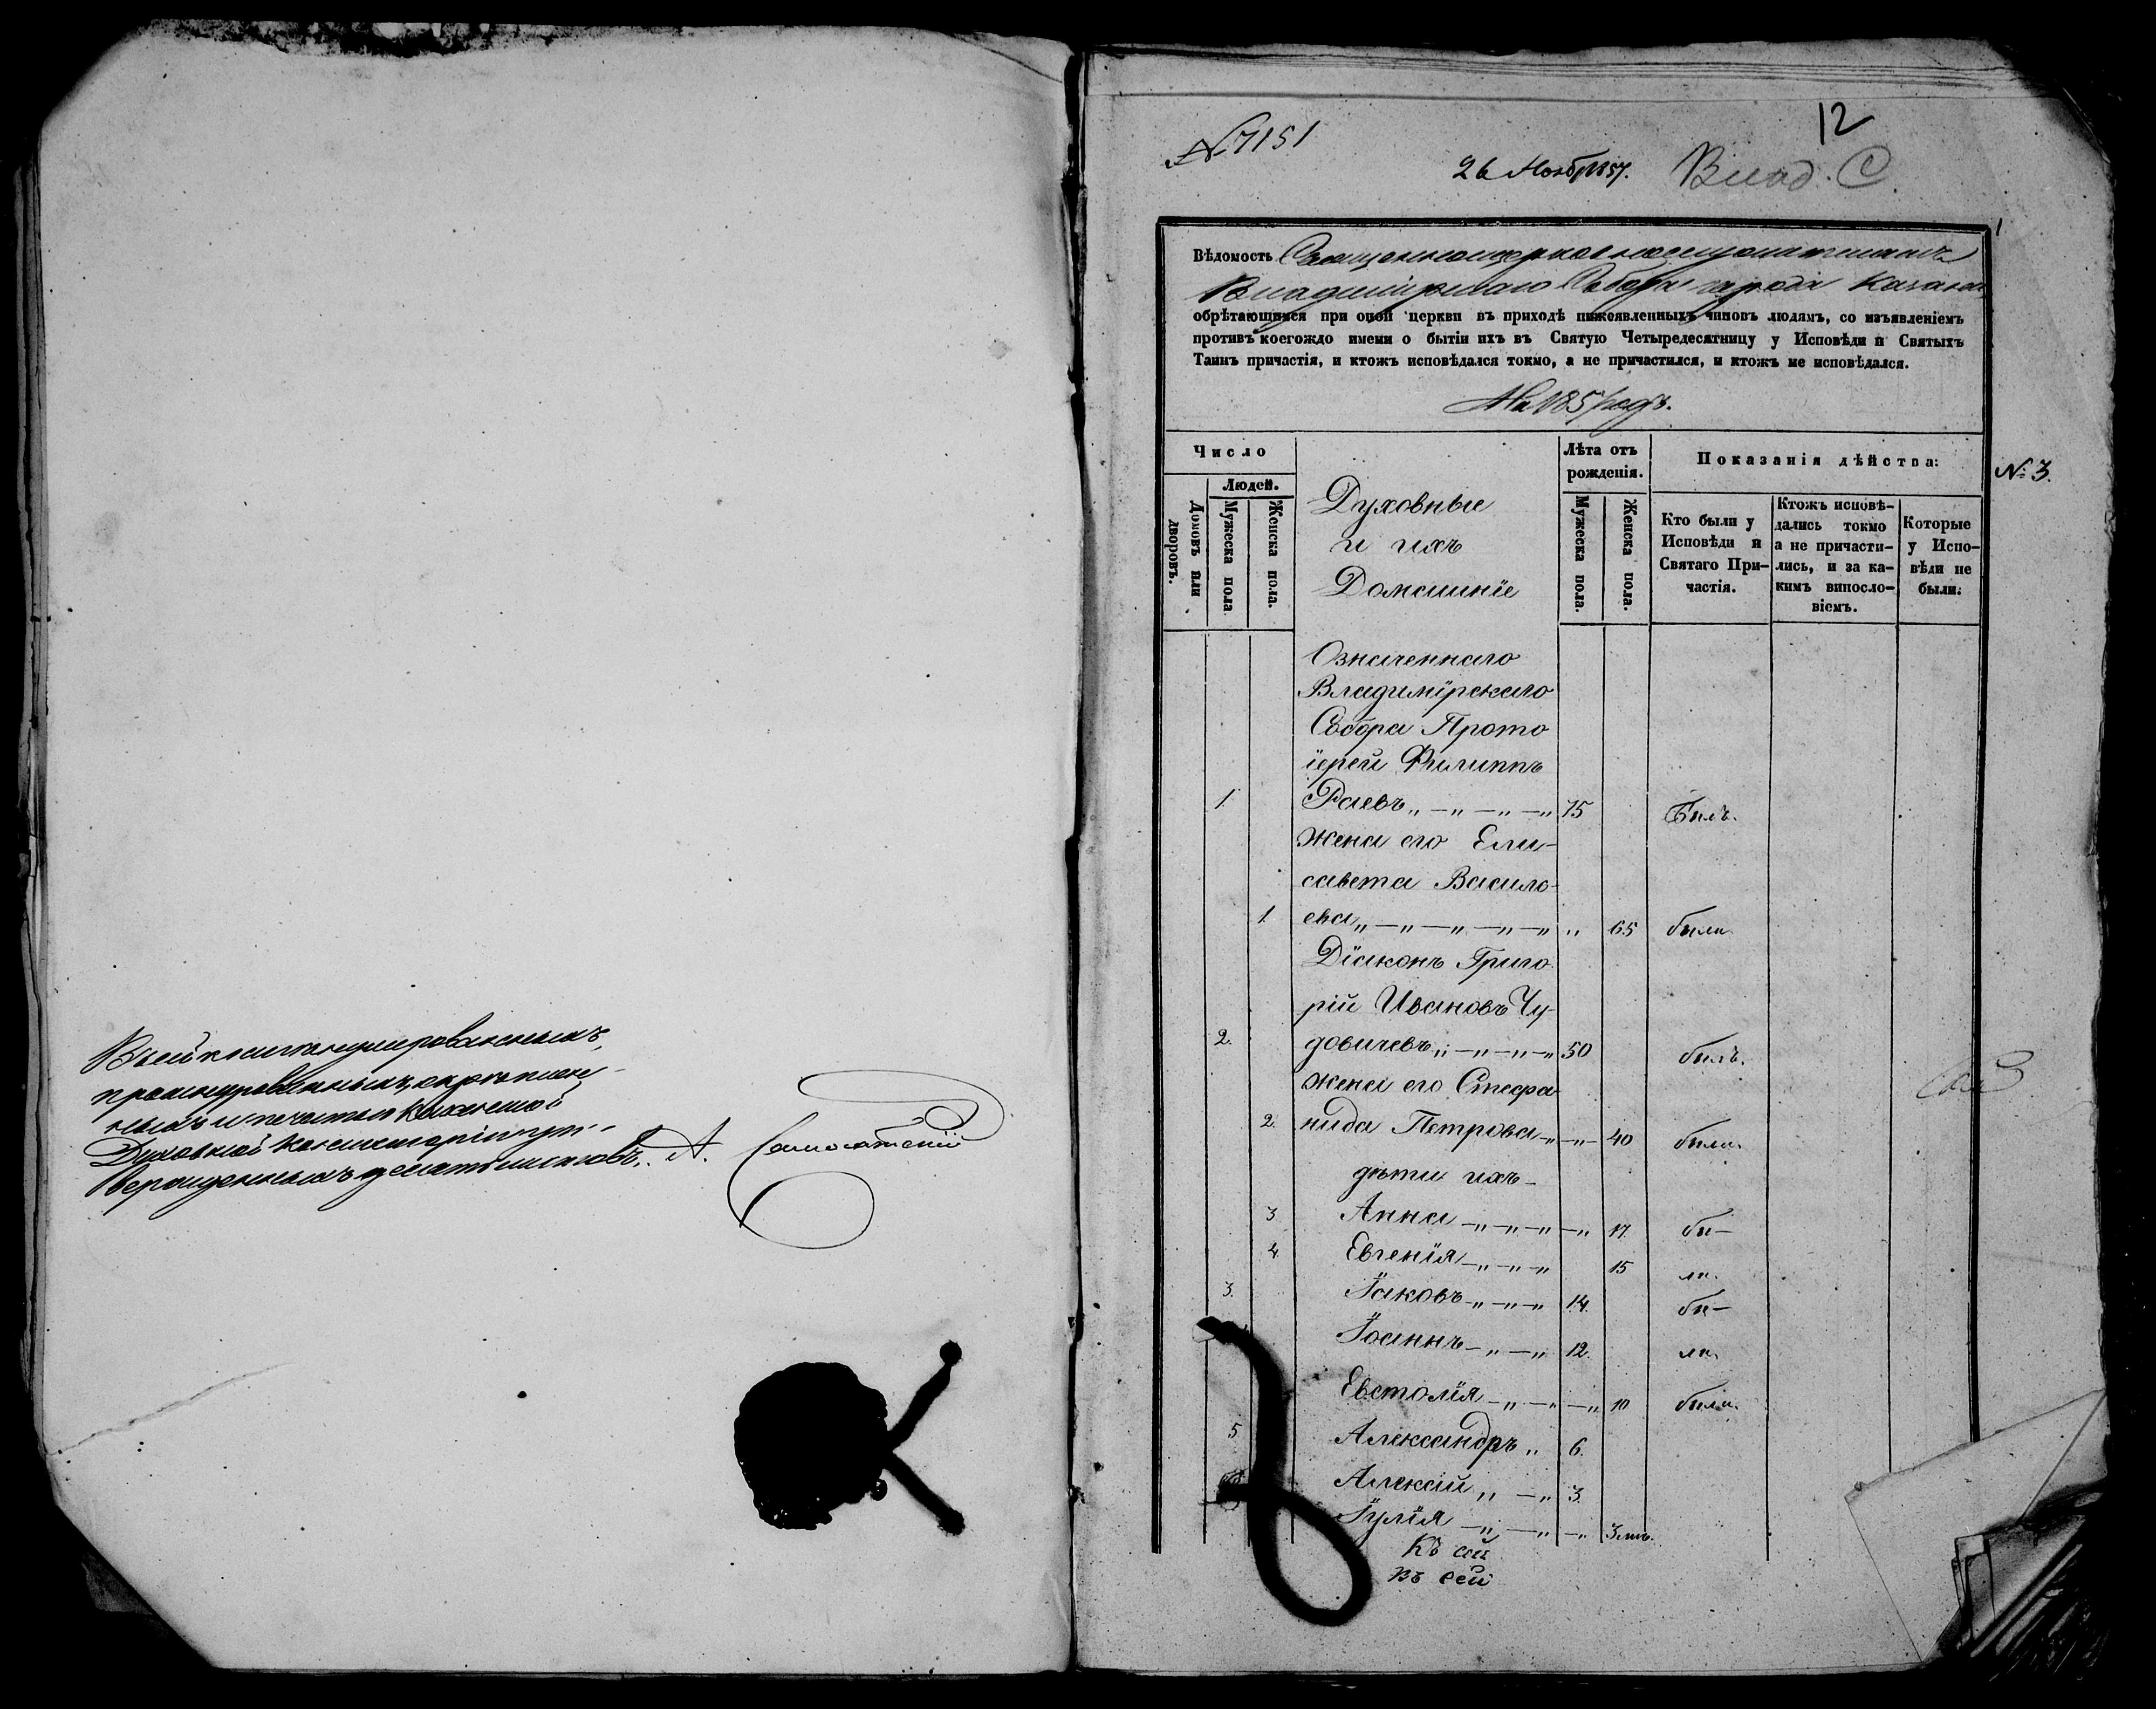 В сей книге нумерованныхъ,
прошнурованныхъ, скреплен-
ныхъ и печатью Казанской
Духовной Консисторіи ут-
вержденныхъ листовъ. А.
№ 7151
12
26 Нояб. 1857.
Влад. С.
1
Вѣдомость Священноцерковнослужителямъ
Владимірскаго Собора города Казани
обрѣтающимся при оной церкви въ приходѣ нижеявленныхъ чиновъ людямъ, со изъявленіемъ
противъ коегождо имени о бытіи ихъ въ Святую Четыредесятницу у Исповѣди и Святыхъ
Таинъ причастія, и ктожъ исповѣдался токмо, а не причастился, и ктожъ не исповѣдался.
На 1857 годъ.
Число
Людей.
Домовъ или дворовъ.
Мужеска пола
Женска пола.
Духовные
и ихъ
Домашніе
Лѣта отъ
рожденія.
Мужеска пола.
Женска пола.
Показанія дѣйства:
Кто были у
Исповѣди и
Святаго При-
частія.
Ктожъ исповѣ-
дались токмо
а не причасти-
лись, и за ка-
кимъ винosло-
віемъ.
Которые
у Испо-
вѣди не
были.
№ 3.
Означеннаго
Владимірскаго
Собора Прото
іерей Филиппъ
1. Раевъ 75 Былъ.
Жена его Ели-
савета Василь-
1. ева 65 была.
Діаконъ Григо
рій Ивановъ Чу-
2. довичевъ 50 былъ.
жена его Стефа
2. нида Петрова 40 была.
дѣти ихъ
3 Анна 17. бы-
4. Евгенія 15 ли.
3. Іаковъ 14. бы-
Іоаннъ 12. ли.
Евстолія 10 была.
5 Александръ 6.
Алексій 3.
Іулія 3 мѣ.